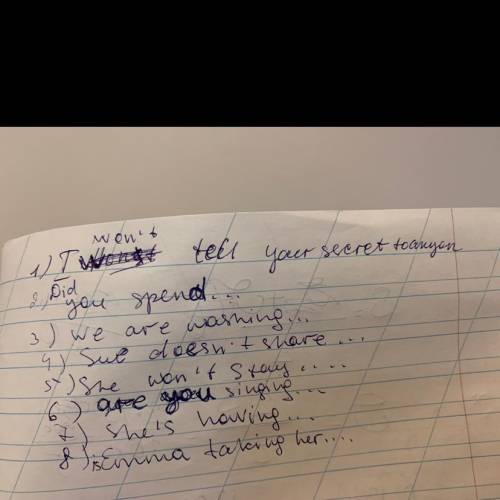 won't
1) I tell your secret to anyon
2) Did you spend...
3) we are washing...
4) Sue doesn't share...
5) She won't stay....
6) are you singing...
7) She's having...
8) is Emma taking her....